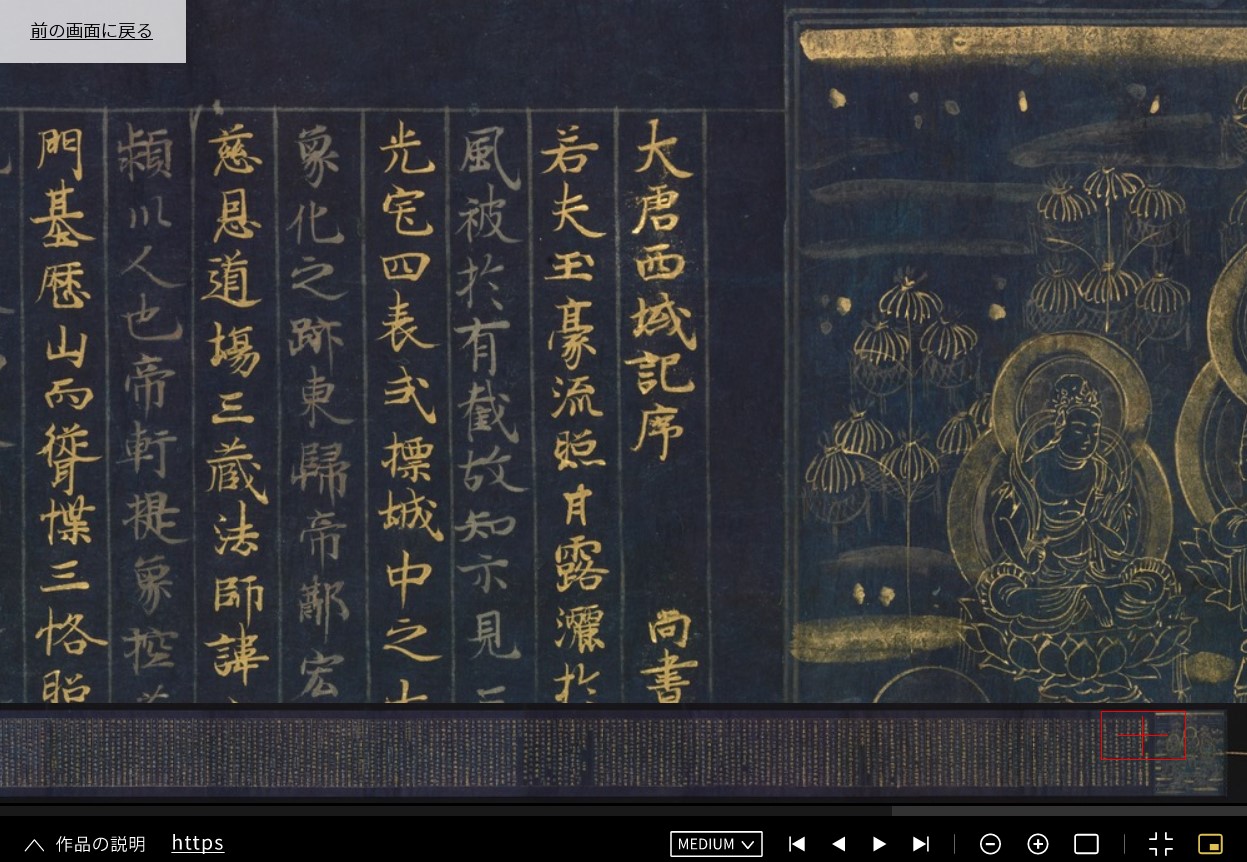 前の画面に戻る
大唐西域記序 尚書
若夫玉豪流照甘露灑於
風被於有截故知示見三
光宅四表式標域中之大
象化之跡東歸帝猷宏
慈恩道場三蔵法師諱
潁川人也帝軒提象控
門基歴山而聳構三恪照
作品の説明 https
MEDIUM